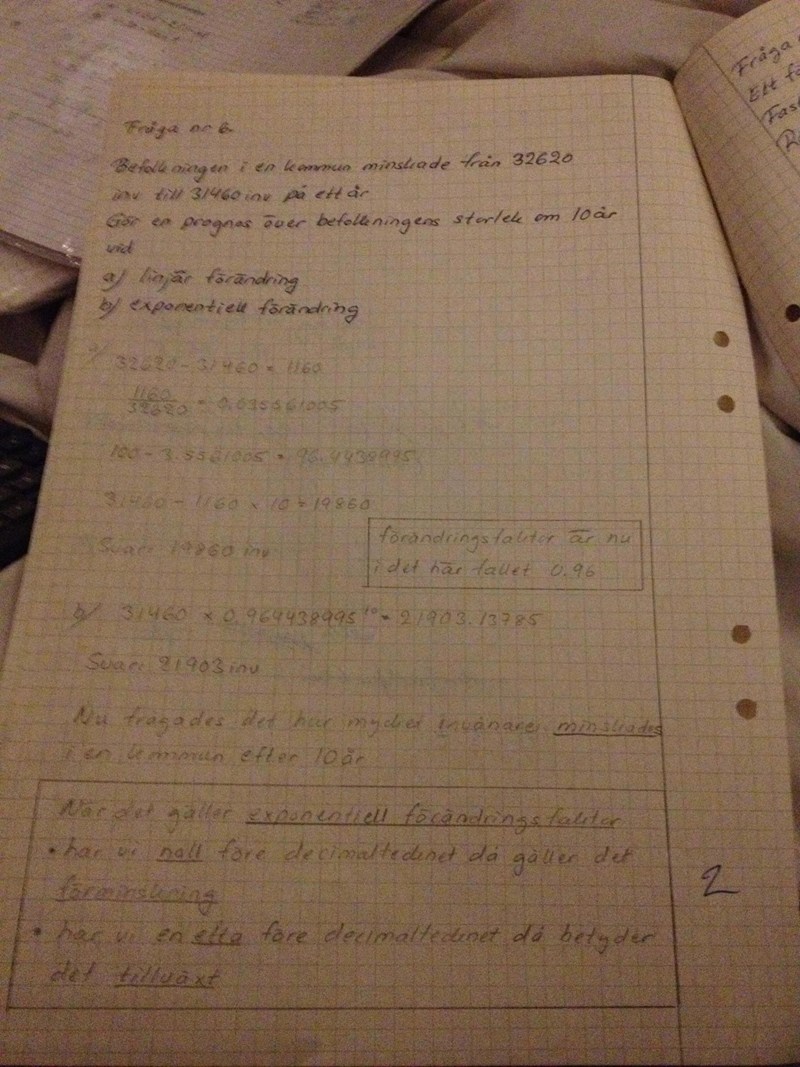 Fråga nr 6
Befolkningen i en kommun minskade från 32620
inv till 31460 inv på ett år
Gör en prognos över befolkningens storlek om 10 år
vid
a) linjär förändring
b) exponentiell förändring
a) 32620 - 31460 = 1160
1160
32620 = 0.035561005
100 - 3.5561005 = 96.4438995
31460 - 1160 x 10 = 19860
Svar: 19860 inv
förändringsfaktor är nu
i det här fallet 0.96
b) 31460 x 0.964438995¹⁰ = 21903.13785
Svar: 21903 inv
Nu frågades det hur mycket invånare minskades
i en kommun efter 10 år
När det gäller exponentiell förändringsfaktor
• har vi noll före decimaltecknet då gäller det
förminskning
• har vi en etta före decimaltecknet då betyder
det tillväxt
2
Fråga
Ett